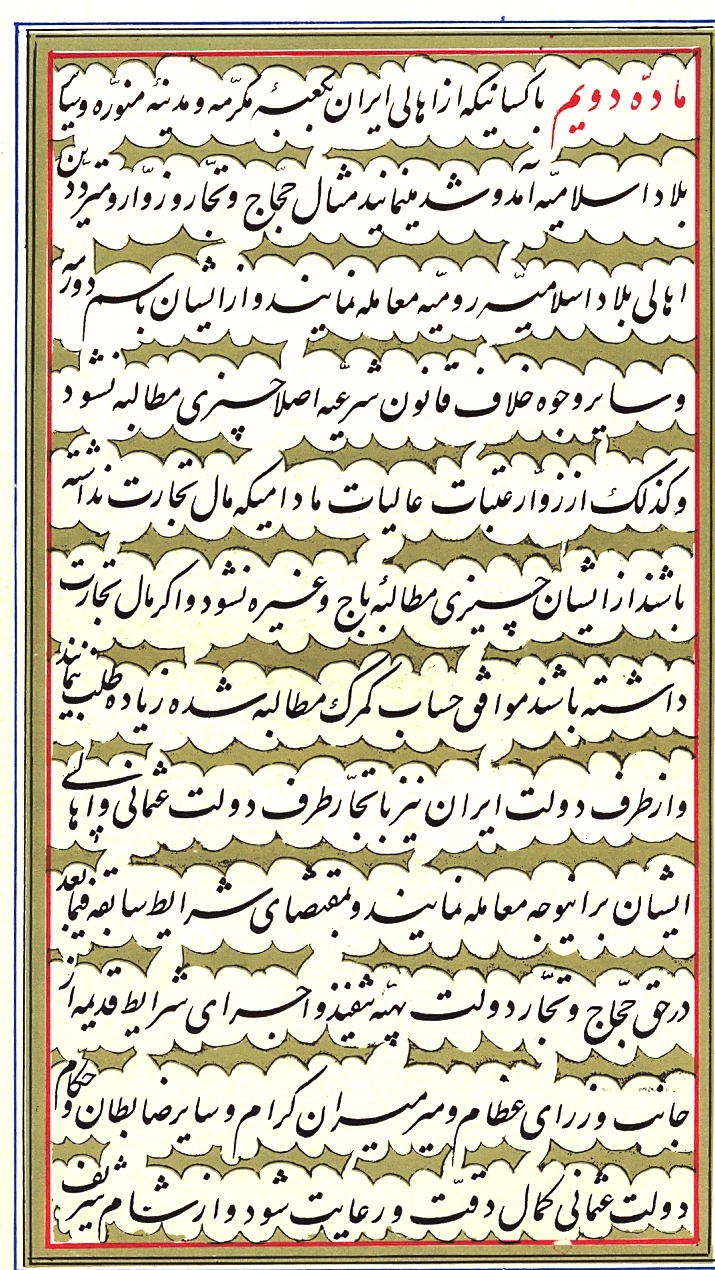 ماده دویم باکسانیکه از اهالی ایران بکعبهٔ مکرّمه و مدینهٔ منوّره و سایر
بلاد اسلامیّه آمد و شد مینمایند مثال حجّاج و تجّار و زوّار و متردّدین
اهالی بلاد اسلامیّه رومیّه معامله نمایند و از ایشان باسم دورمه
و سایر وجوه خلاف قانون شرعیّه اصلا چیزی مطالبه نشود
و کذلک از زوّار عتبات عالیات مادامیکه مال تجارت نداشته
باشند از ایشان چیزی مطالبهٔ باج و غیره نشود و اکر مال تجارت
داشته باشند موافق حساب کمرک مطالبه شده زیاده طلب ننمایند
و از طرف دولت ایران نیز با تجّار طرف دولت عثمانی و اهالی
ایشان براینوجه معامله نمایند و بمقتضای شرایط سابقه فیمابعد
در حق حجّاج و تجّار دولت بهیّه تنفیذ و اجرای شرایط قدیمه از
جانب وزرای عظام و میرمیران کرام و سایر ضابطان و حکّام
دولت عثمانی کمال دقّت و رعایت شود و از شام شریف